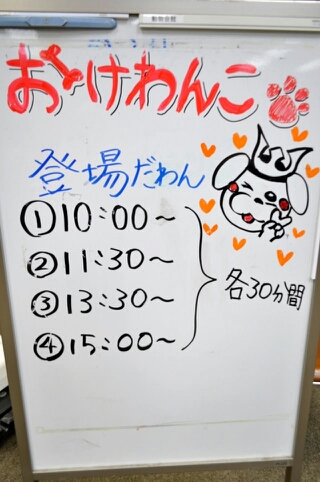 動物会館
おかけわんこ
登場だわん
①10:00～
②11:30～
③13:30～
④15:00～
各30分間